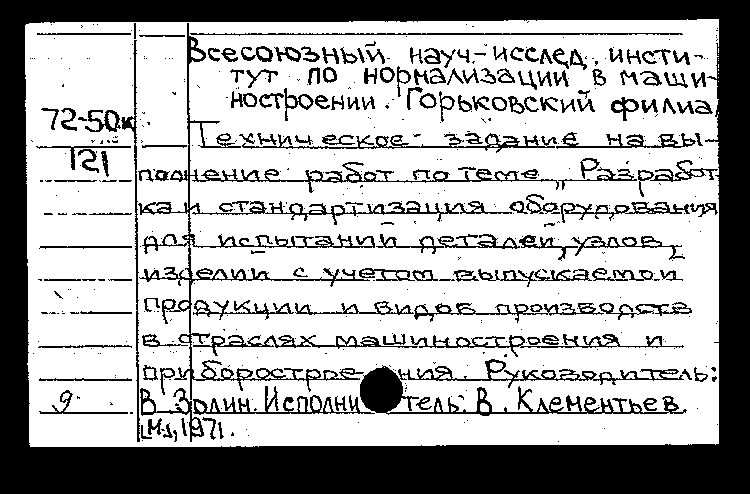 Всесоюзный науч.-исслед. инсти-
тут по нормализации в маши-
ностроении. Горьковский филиа
72-50к
121
Техническое задание на вы-
полнение работ по теме „Разработ
ка и стандартизация оборудования
для испытаний деталей, узлов,
изделий с учетом выпускаемой
продукции и видов производств
в отраслях машиностроения и
приборострое- ния. Руководитель:
9.
В. Золин. Исполни тель: В. Клементьев.
[М.], 1971.